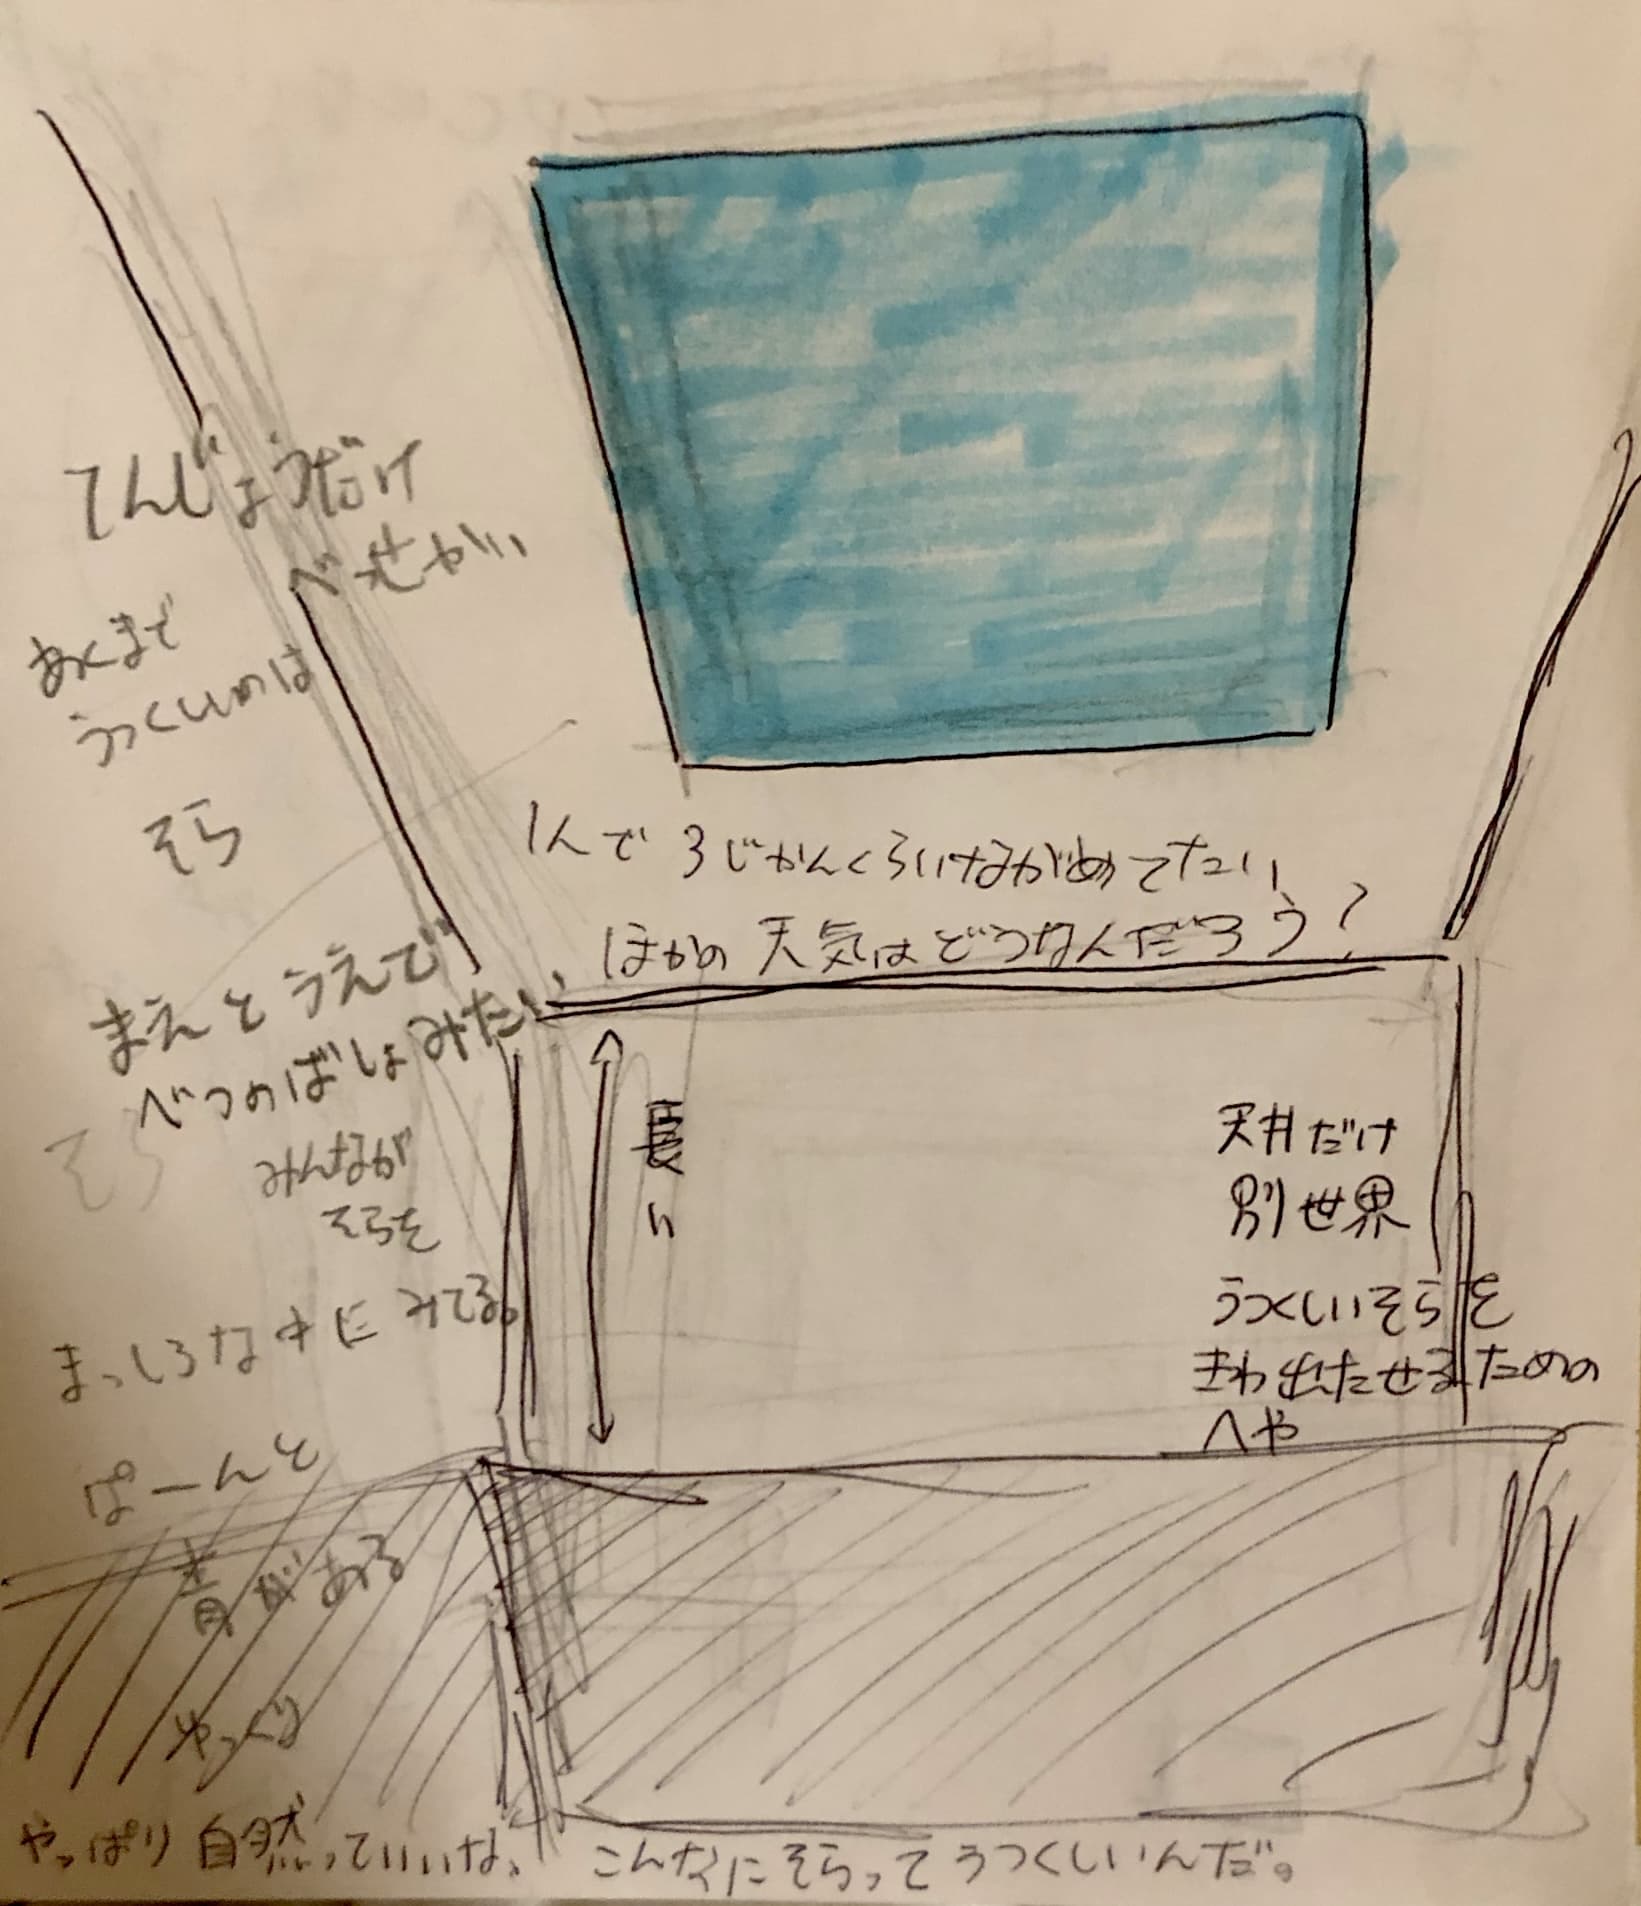 てんじょうだけ
べっせかい
あくまで
うつくしいのは
そら
1人で3じかんくらいながめてたい
ほかの天気はどうなんだろう?
まえとうえで
べつのばしょみたい
そら
みんなが
そらを
みてる。
長い
天井だけ
別世界
うつくしいそらを
きわ出たせるための
へや
まっしろな中に
ぱーんと
青がある
ゆっくり
やっぱり自然っていいな、
こんなにそらってうつくしいんだ。